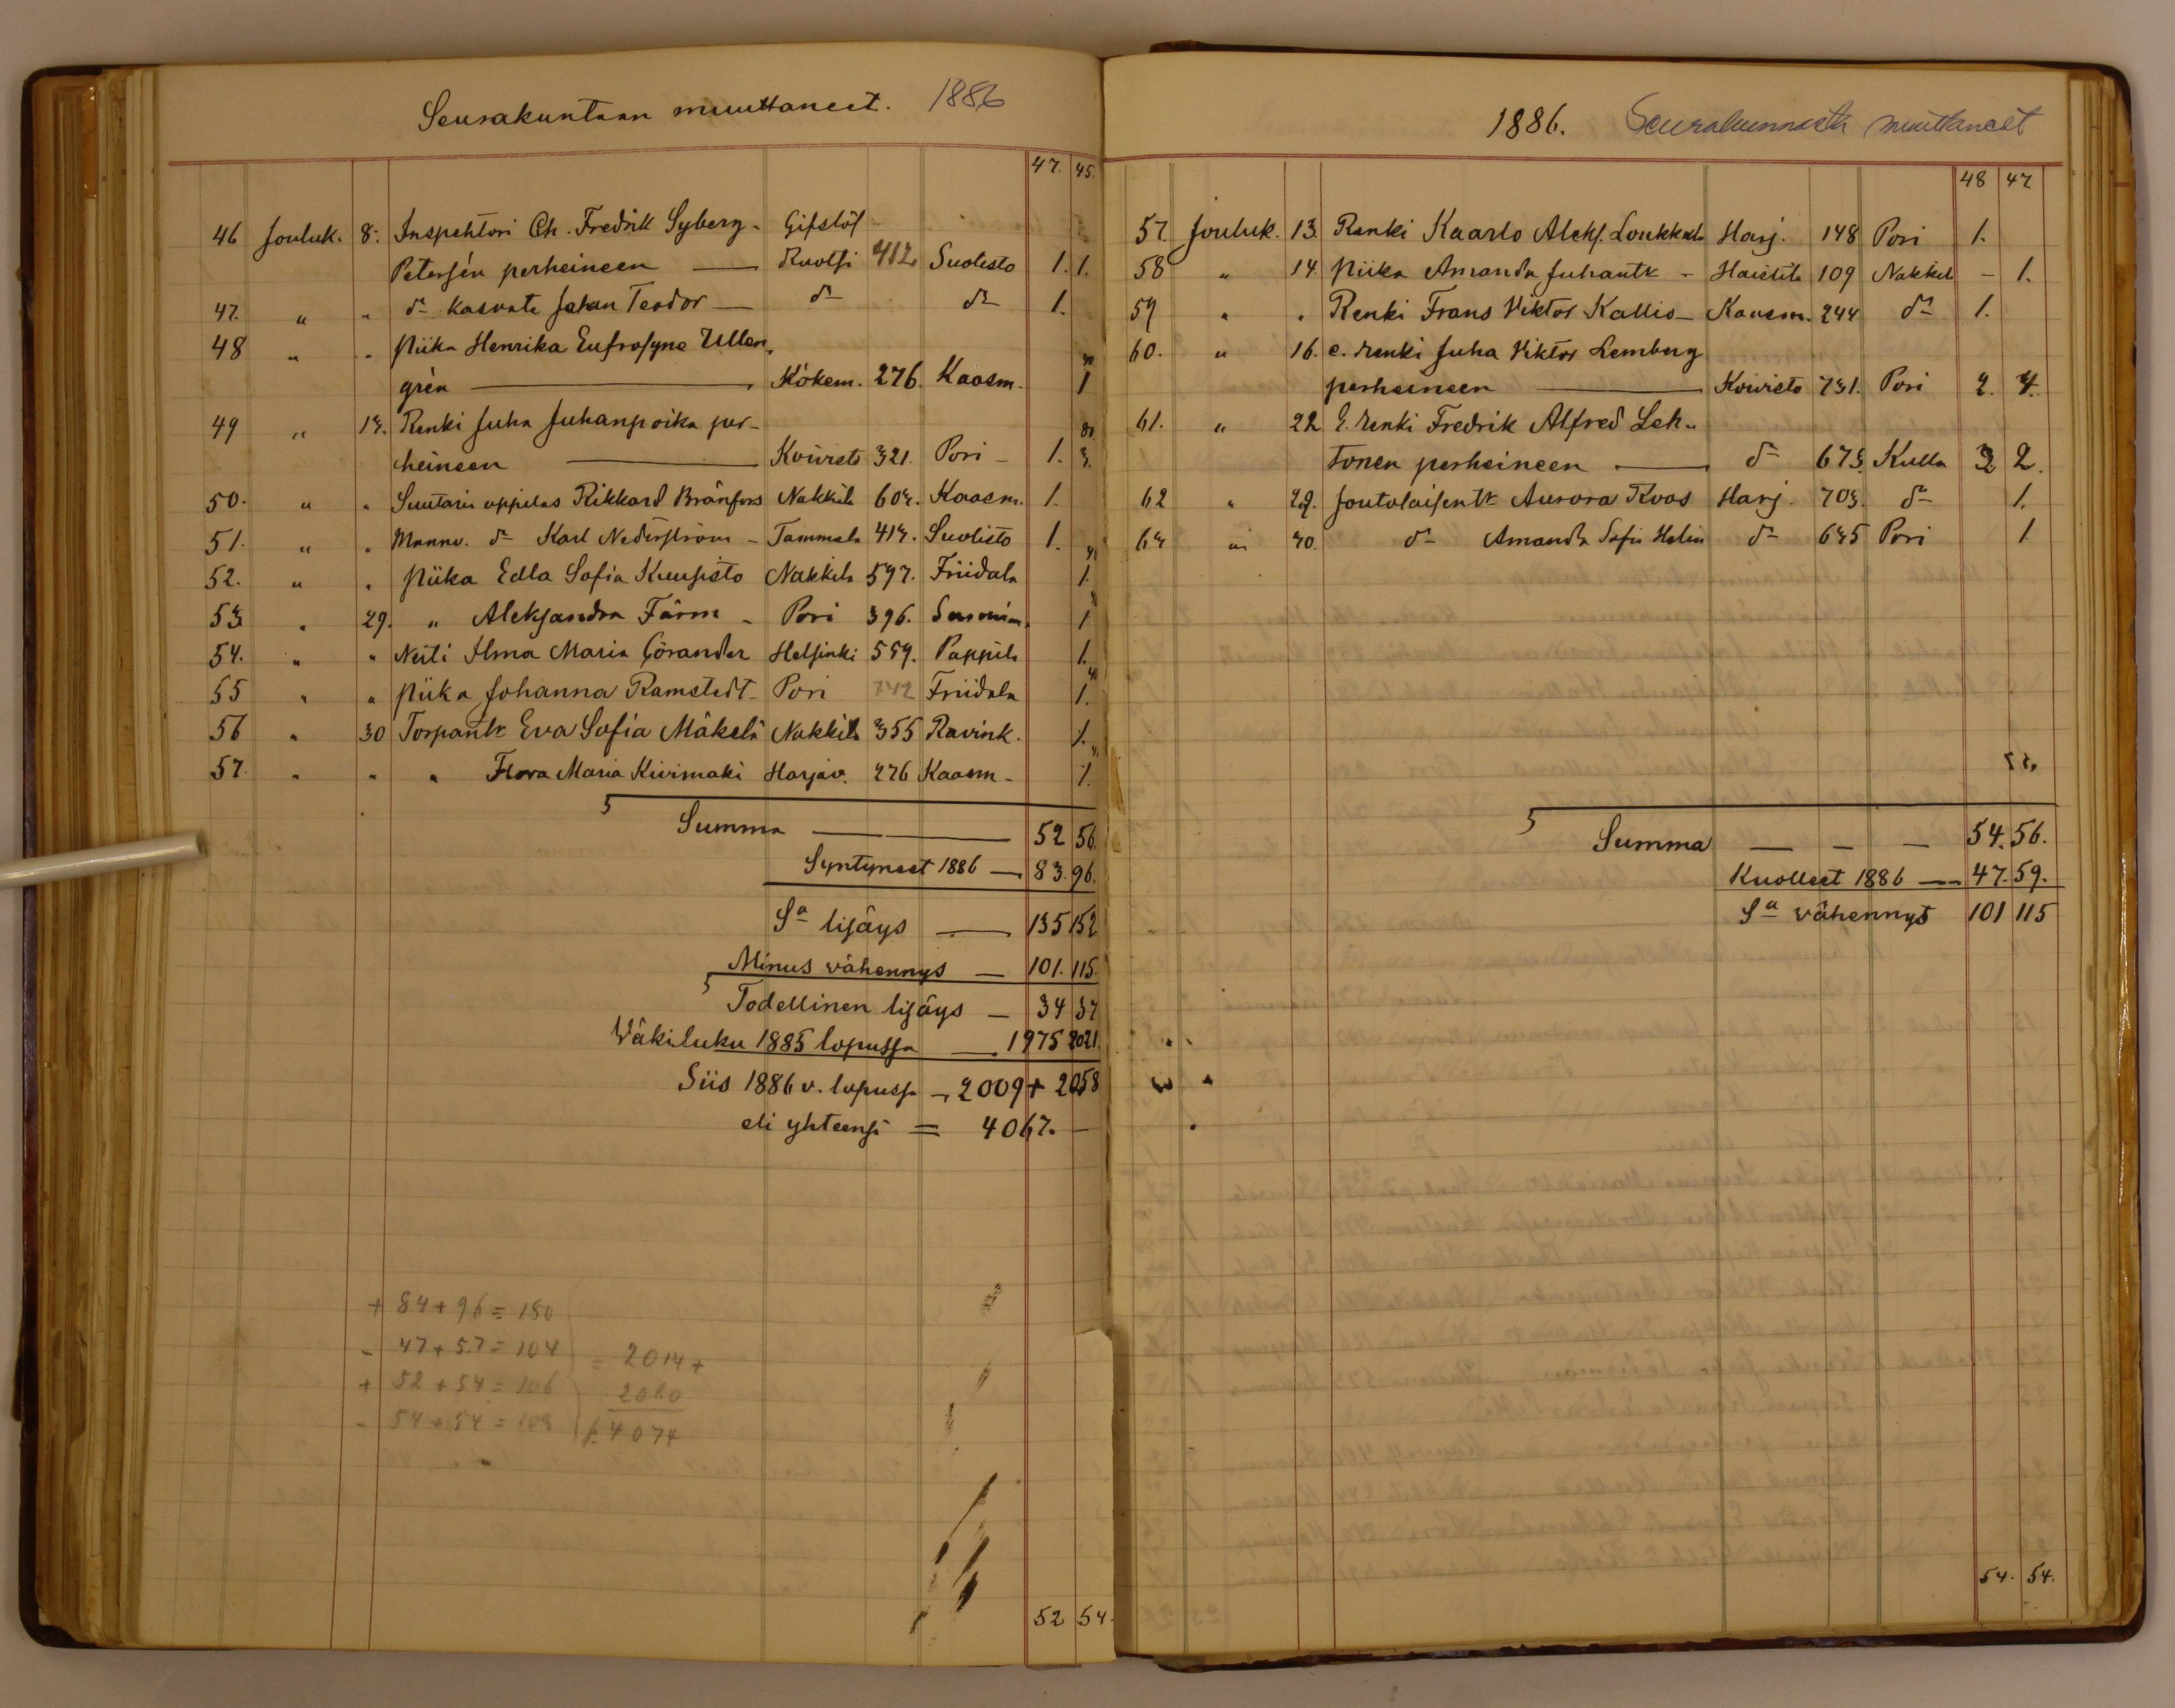 Seurakuntaan muuttaneet. 1886
47. 45.
46 Jouluk. 8. Inspehtori Ch. Fredrik Syberg- Gifslöf
Petersén perheineen — Ruotsi 412 Suolisto 1. 1.
47. " " do kasvate Johan Teodor — do do 1.
48 " " Piika Henrika Eufrosyne Ullen,
grén — Kökem. 276. Kaasm. 1
49 " 13. Renki Juha Juhanpoika per-
heineen — Koivisto 321. Pori - 1. 3.
50. " " Suutarin oppilas Rikkard Brånfors Nakkila 603. Kaasm. 1.
51. " " Mannv. do Karl Nederström - Tammela 413. Suolisto 1.
52. " " Piika Edla Sofia Kuusisto Nakkila 597. Friidala 1.
53 " 29. " Aleksandra Färm - Pori 396. 1
54. " " Neiti Ilma Maria Görander Helsinki 559. Pappila 1.
55 " " Piika Johanna Ramstedt - Pori 742 Friidala 1.
56 " 30 Torpantr Eva Sofia Mäkelä Nakkila 355 Ravink. 1.
57. " " " Flora Maria Kivimäki Harjav. 276 Kaasm - 1.
Summa — 52 56.
Syntyneet 1886 — 83. 96.
Sa lisäys — 135 152
Minus vähennys — 101. 115.
Todellinen lisäys — 34 37
Väkiluku 1885 lopussa — 1975 2021.
Siis 1886 v. lopussa - 2009 + 2058
eli yhteensä = 4067. —
+ 84 + 96 = 180
- 47 + 57 = 104 = 2014 +
+ 52 + 54 = 106 2060
- 54 + 54 = 108 4074
52 54.
1886. Seurakunnasta muuttaneet
48 47
57. Jouluk. 13. Renki Kaarlo Aleks. Loukkala Harj. 148 Pori 1.
58 " 14. Piika Amanda Juhantr - Haistila 109 Nakkila - 1.
59 " " Renki Frans Viktor Kallio - Kaasm. 244 do 1.
60. " 16. e. renki Juha Viktor Lemberg
perheineen — Koivisto 731. Pori 2. 4.
61. " 22 E. renki Fredrik Alfred Leh-
tonen perheineen — do 675. Kulla 3 2.
62 " 29. Joutolaisentr Aurora Roos Harj. 703. do 1.
63 " 30. do Amanda Sofia Helin do 635 Pori 1
Summa — — — 54. 56.
Kuolleet 1886 — 47. 59.
Sa vähennys 101 115
54. 54.